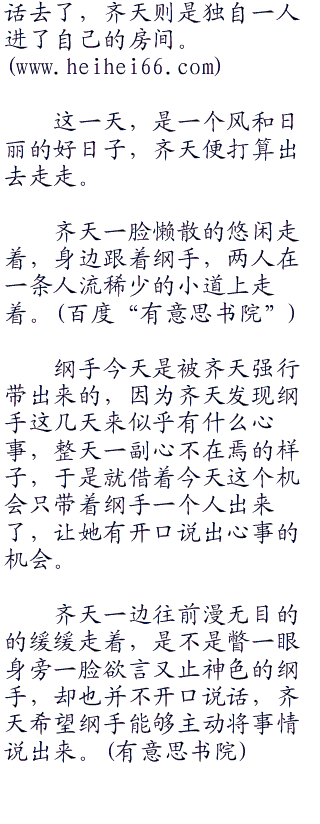 话去了，齐天则是独自一人
进了自己的房间。
(www.heihei66.com)
这一天，是一个风和日
丽的好日子，齐天便打算出
去走走。
齐天一脸懒散的悠闲走
着，身边跟着纲手，两人在
一条人流稀少的小道上走
着。(百度“有意思书院”)
纲手今天是被齐天强行
带出来的，因为齐天发现纲
手这几天来似乎有什么心
事，整天一副心不在焉的样
子，于是就借着今天这个机
会只带着纲手一个人出来
了，让她有开口说出心事的
机会。
齐天一边往前漫无目的
的缓缓走着，是不是瞥一眼
身旁一脸欲言又止神色的纲
手，却也并不开口说话，齐
天希望纲手能够主动将事情
说出来。(有意思书院)